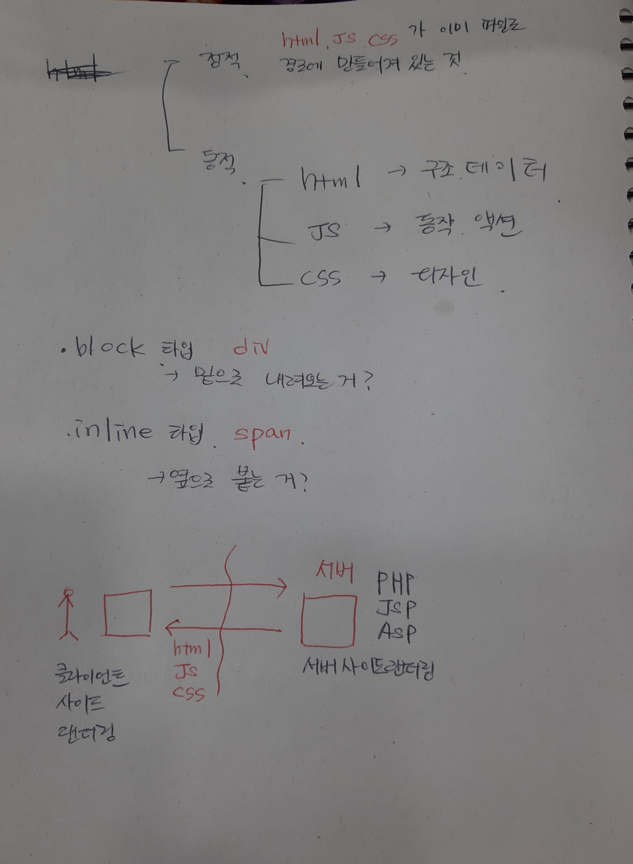 html
정적. html, JS, CSS 가 이미 파일로
경로에 만들어져 있는 것.
동적.
html → 구조. 데이터
JS → 동작. 액션
CSS → 디자인.
·block 타입 div
→ 밑으로 내려오는 거?
·inline 타입. span.
→ 옆으로 붙는 거?
서버
PHP
JSP
ASP
html
JS
CSS
클라이언트
사이트
랜더링
서버사이드랜더링